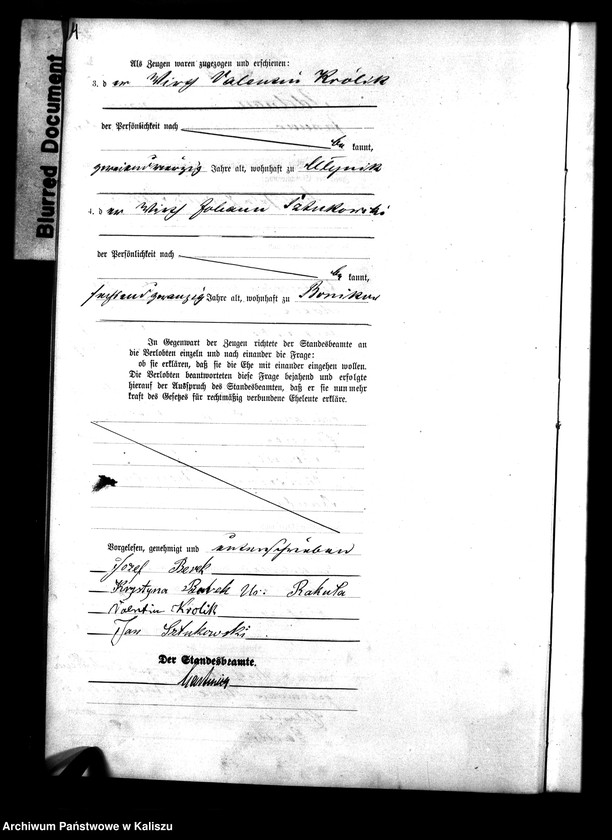 Blurred Document
Als Zeugen waren zugezogen und erschienen:
3. d er Wirth Valentin Królik
der Persönlichkeit nach
be kannt,
zweiundvierzig Jahre alt, wohnhaft zu Młynik
4. d er Wirth Johann Sztukowski
der Persönlichkeit nach
be kannt,
sechsundzwanzig Jahre alt, wohnhaft zu Bonikow
In Gegenwart der Zeugen richtete der Standesbeamte an
die Verlobten einzeln und nach einander die Frage:
ob sie erklären, daß sie die Ehe mit einander eingehen wollen.
Die Verlobten beantworteten diese Frage bejahend und erfolgte
hierauf der Ausspruch des Standesbeamten, daß er sie nunmehr
kraft des Gesetzes für rechtmäßig verbundene Eheleute erkläre.
Vorgelesen, genehmigt und unterschrieben
Józef Berek
Krystyna Berek Ur: Rakuła
Valentin Krolik
Jan Sztukowski
Der Standesbeamte.
Archiwum Państwowe w Kaliszu